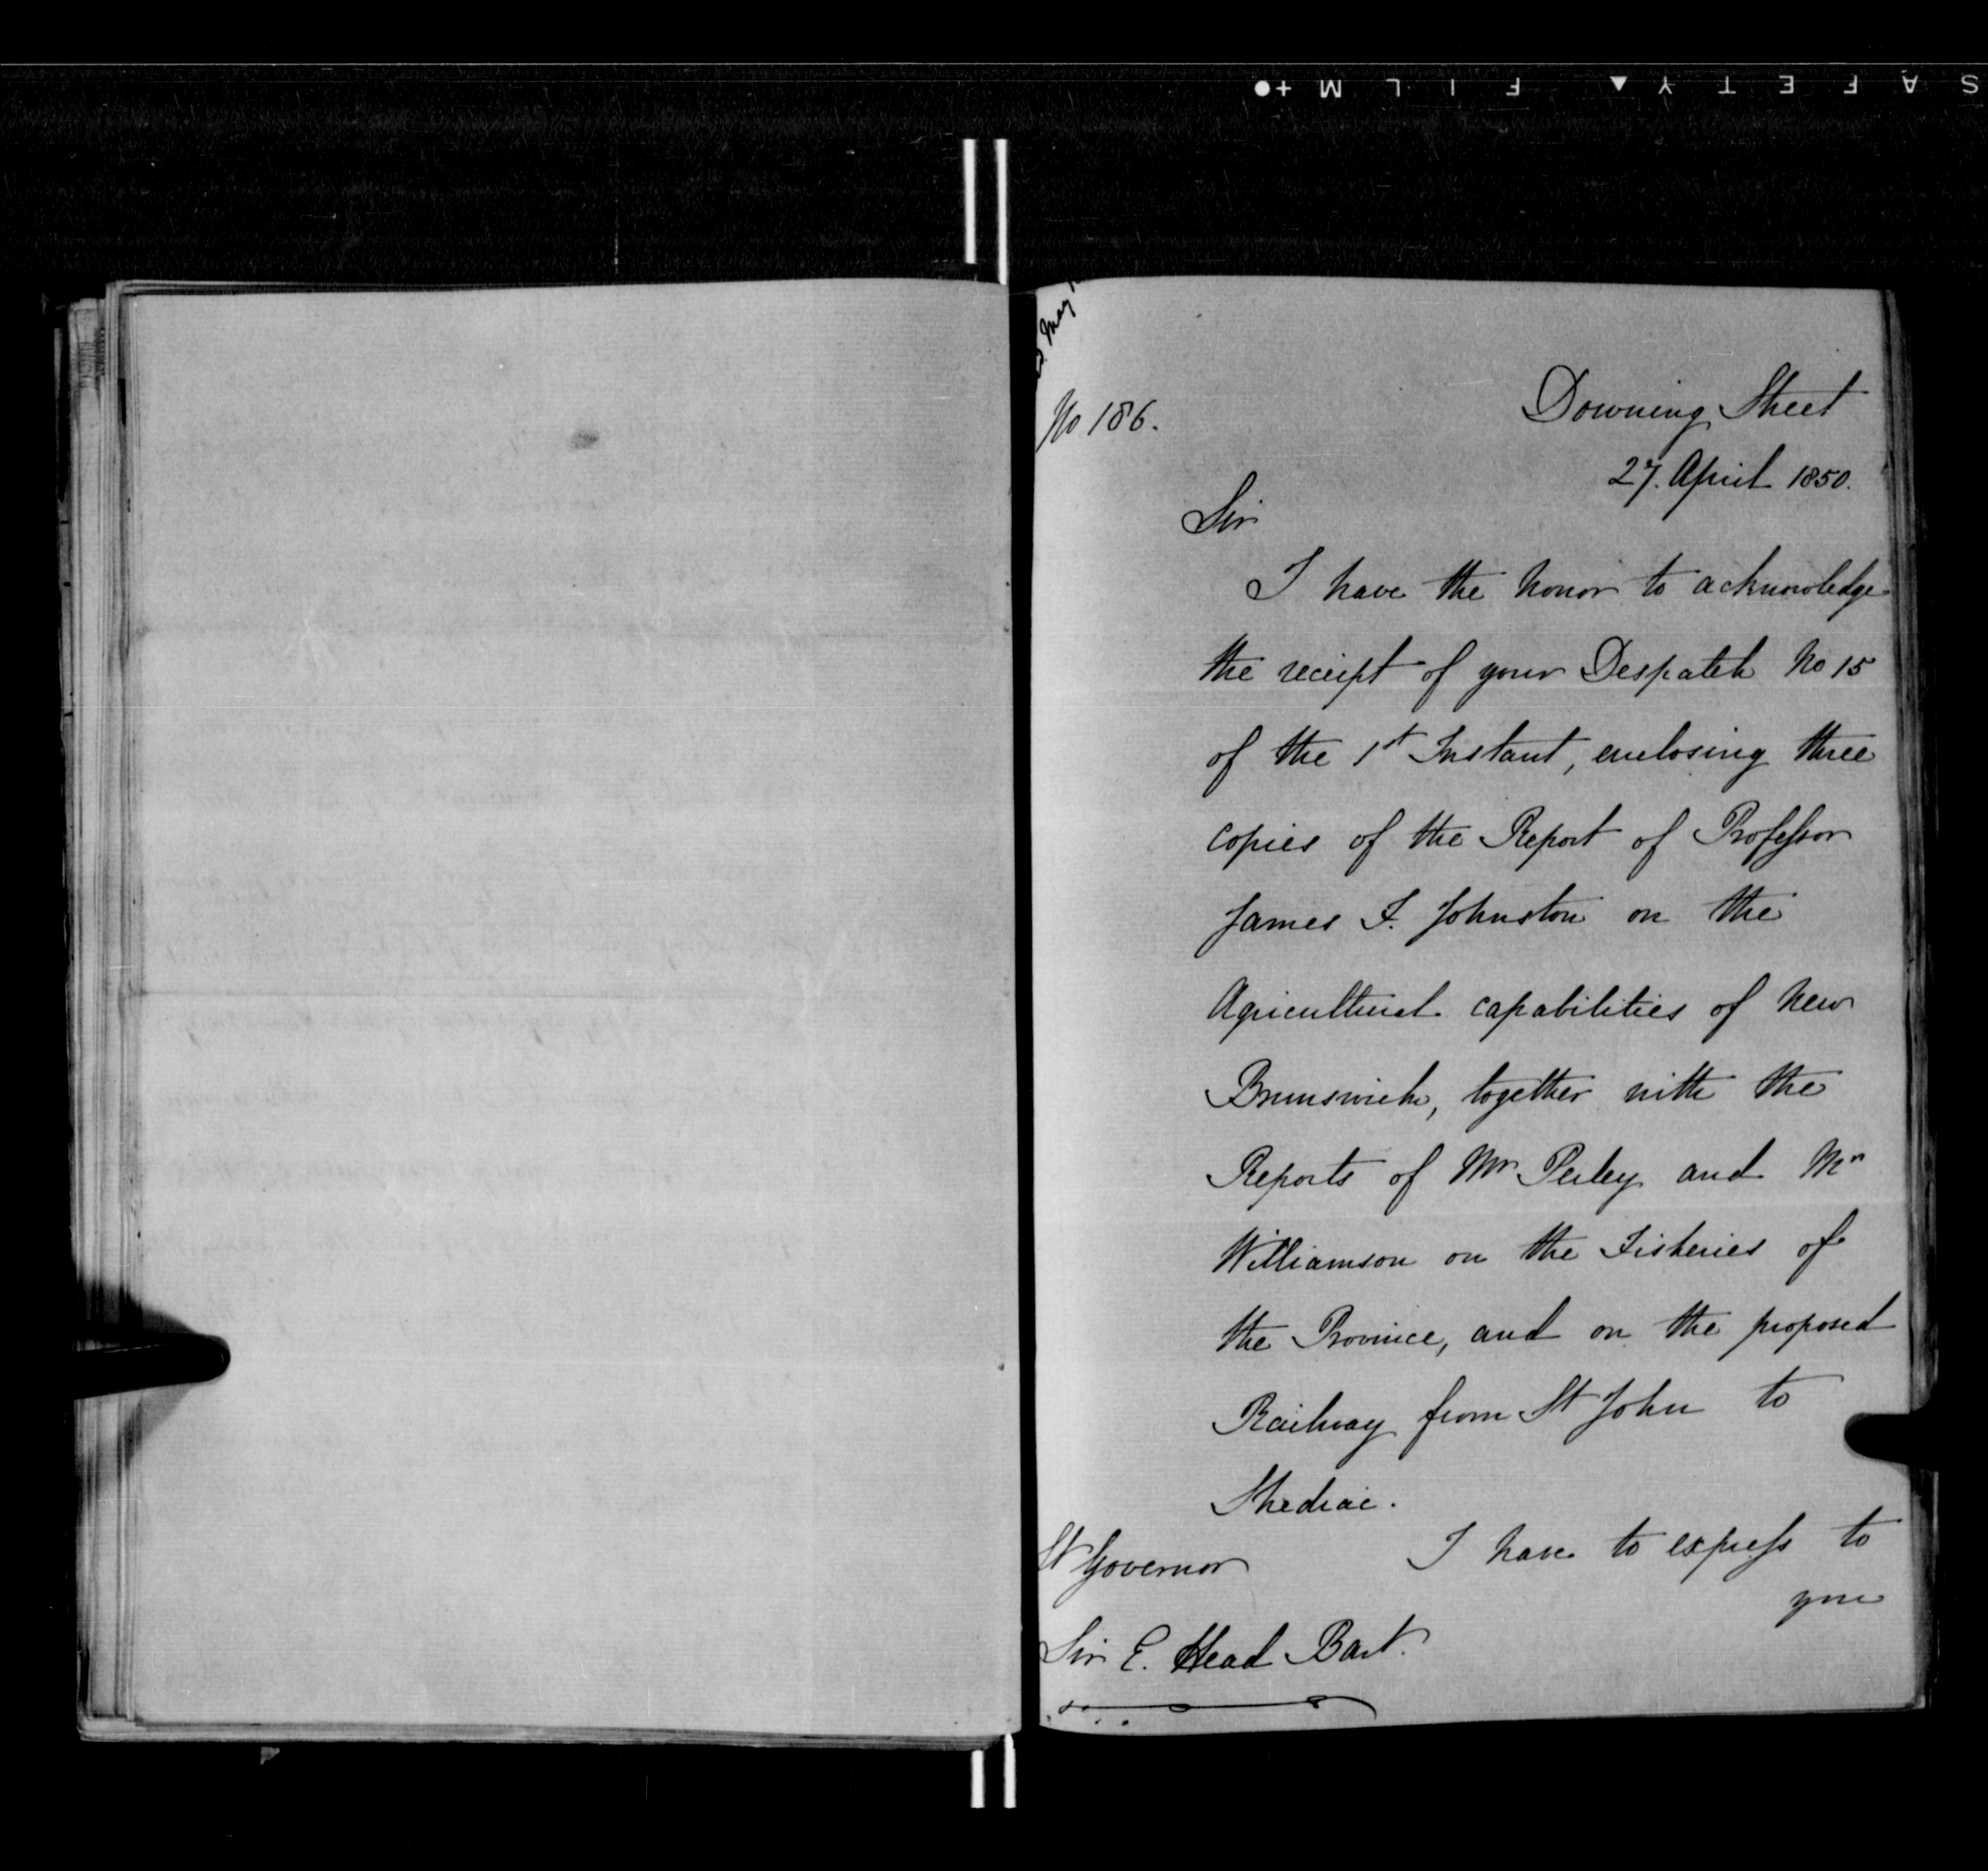 SAFETY ▲ FILM +●
May
No 186.
Downing Street
27. April 1850.
Sir
I have the honor to acknowledge
the receipt of your Despatch No 15
of the 1st Instant, enclosing three
copies of the Report of Professor
James F. Johnston on the
Agricultural capabilities of New
Brunswick, together with the
Reports of Mr Perley and Mr
Williamson on the Fisheries of
the Province, and on the proposed
Railway from St John to
Shediac.
I have to express to
you
Lt Governor
Sir E. Head Bart.